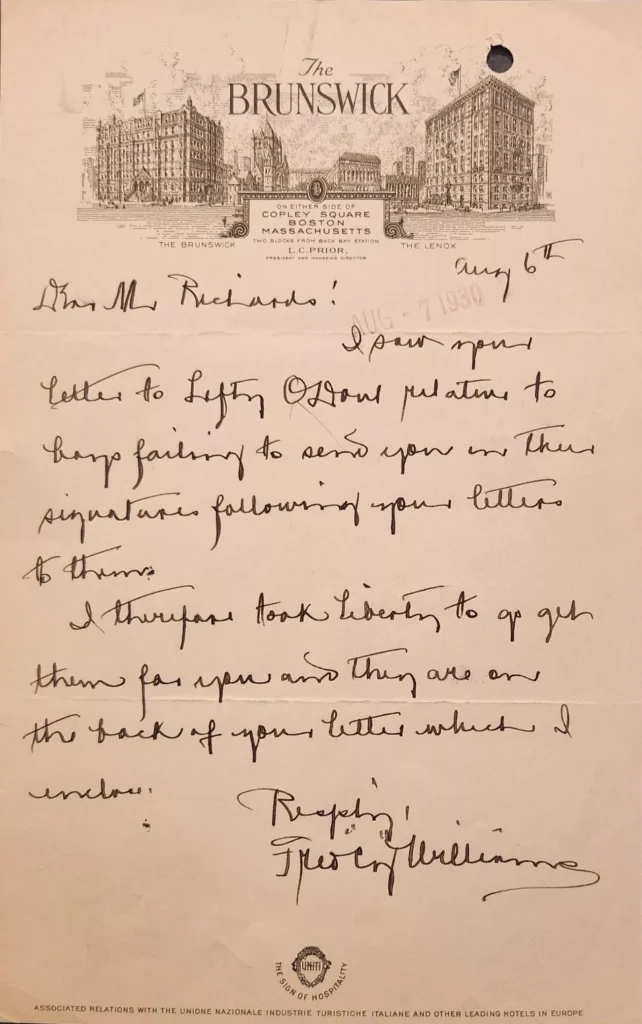 The
BRUNSWICK
ON EITHER SIDE OF
COPLEY SQUARE
BOSTON
MASSACHUSETTS
TWO BLOCKS FROM BACK BAY STATION
L.C. PRIOR,
PRESIDENT AND MANAGING DIRECTOR
THE BRUNSWICK
THE LENOX
Aug 6th
Dear Mr Richards!
AUG - 7 1930
I saw your
letter to Lefty O'Doul relative to
boys failing to send you in their
signatures following your letters
to them.
I therefore took liberty to go get
them for you and they are on
the back of your letter which I
enclose.
Respfly,
Fred "Cy" Williams
UNITI
THE SIGN OF HOSPITALITY
ASSOCIATED RELATIONS WITH THE UNIONE NAZIONALE INDUSTRIE TURISTICHE ITALIANE AND OTHER LEADING HOTELS IN EUROPE